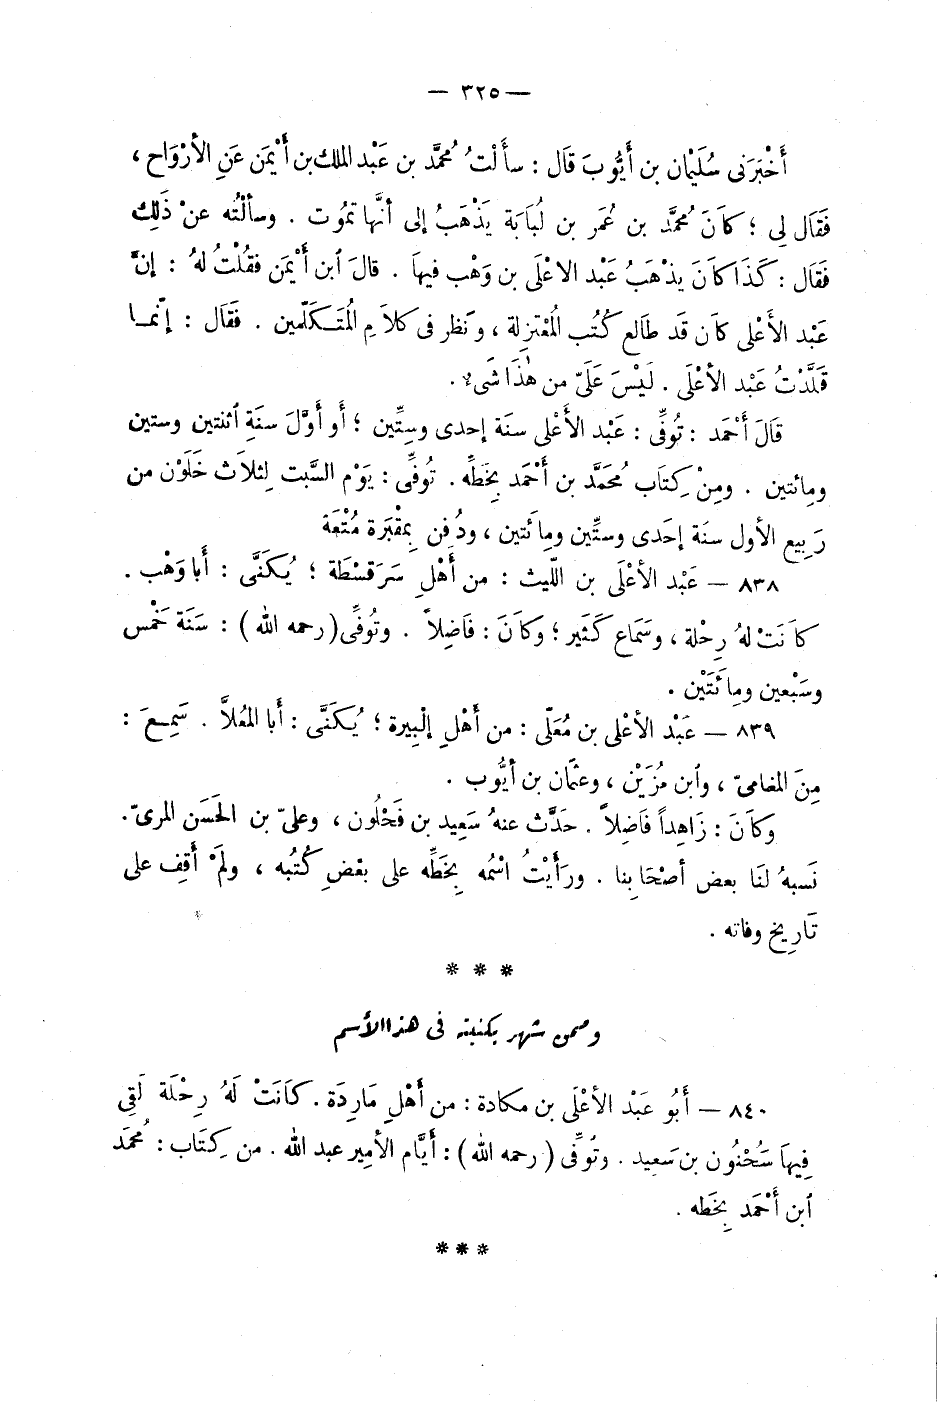 — ٣٢٥ —
أَخْبَرَنى سُلَيْمان بن أَيُّوبَ قَال : سأَلْتُ مُحمَّد بن عَبْد الملك بن أَيْمَن عَنِ الأرْوَاح ،
فَقَال لِى ؛ كاَنَ مُحمَّد بن عُمَر بن لُبَابَة يَذْهَبُ إلى أنَّها تمُوت . وسألْتُه عنْ ذَلِك
فَقَال : كَذَا كاَنَ يذْهَبُ عَبْد الاعْلَى بن وَهْب فيهاَ . قالَ ٱبن أَيْمَن فقُلْتُ لهُ : إنَّ
عَبْد الأَعْلى كاَن قَد طالع كُتُب المُعْتزِلة ، وَنَظر فى كلاَمِ المُتَكَلّمين . فَقَال : إنّما
قَلَّدْتُ عَبْد الأعْلَى . لَيْسَ عَلَىّ من هٰذَا شَىء .
قَالَ أَحْمَد : تُوفِّى : عَبْد الأَعْلى سنَة إحدى وسِتِّين ؛ أَو أَوَّلَ سنَةِ ٱثنتين وستين
ومِائتين . ومِنْ كِتَاب مُحَمَّد بن أَحْمَد بِخَطِّه . تُوفِّى : يَوْم السَّبت لِثلاَث خَلَوْن من
رَبِيع الأول سنَة إحَدى وستِّين ومِائَتين ، ودُفن بِمقْبَرة مُتْعَة
٨٣٨ — عَبْد الأعْلَى بن اللّيث : من أَهْلِ سَرَقسْطَة ؛ يُكَنَّى : أَبا وَهْب .
كاَنَتْ لهُ رِحْلة ، وسَمَاع كَثير ؛ وكاَنَ : فَاضِلاً . وتوُفِّى (رحمه الله) : سَنَة خَمْس
وسَبْعين ومِائَتَيْن .
٨٣٩ — عَبْد الأعْلى بن مُعَلّى : من أَهْلِ إلْبِيرة ؛ يُكَنَّى : أَبا المُعَلاَّ . سَمِعَ :
مِنَ المغامىّ ، وٱبن مُزَيْن ، وعثمَان بن أيُّوب .
وكاَنَ : زَاهِداً فَاضِلاً . حدَّث عنهُ سَعِيد بن فَحْلُون ، وعلىّ بن الحَسَن المرىّ .
نَسبهُ لنَا بعض أصْحَابِنا . ورَأَيْتُ اسْمُه بِخَطِّه على بعْضِ كُتُبه ، ولمَْ أَقِف على
تَارِيخ وفاته .
* * *
وممن شهر بكنيته فى هذا الأسم
٨٤٠ — أَبُو عَبْد الأعْلَى بن مكادة : من أَهْلِ مَارِدَة . كاَنَتْ لَهُ رِحْلَة لَقِى
فِيهاَ سَُحْنُون بن سَعِيد . وتُوفِّى (رحمه الله) : أَيَّام الأمِير عبد الله . من كِتَاب : مُحمَّد
ٱبن أَحْمَد بِخَطه .
* * *